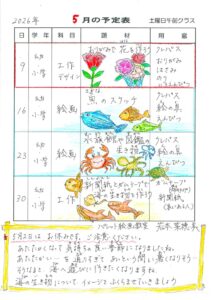 2026年
5月の予定表
土曜日午前クラス
日 学年 科目 題材 用意
9 幼 小学 工作 デザイン おりがみで花を作ろう クレパス おりがみ はさみ のり えんぴつ
16 幼 小学 絵画 魚のスケッチ クレパス 絵の具 えんぴつ
23 幼 小学 絵画 水族館や図鑑の生き物を クレパス 絵の具 えんぴつ
30 幼 小学 工作 新聞紙とダンボールで 新聞紙
パレット絵画教室
5月2日はお休みです。ご注意ください。
あたたかくなって気持ちの良い季節になりましたね。
あたたかい を通りすぎて あっという間に暑くなりそう
そうなると 海へ遊びに行きたくなりますね
海の生き物について イメージをふくらませていきましょう